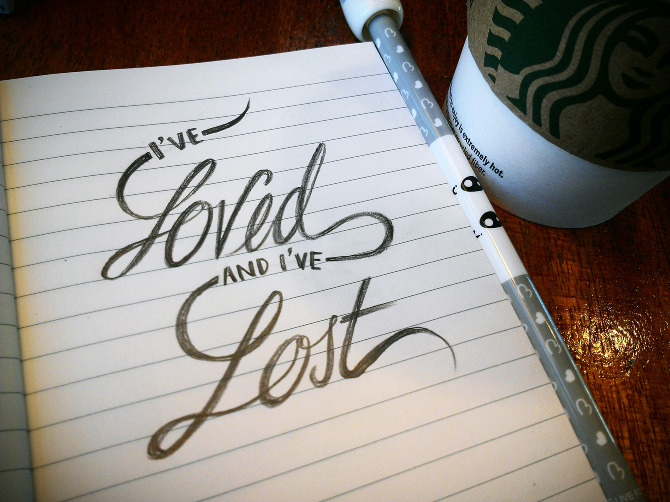 I'VE
Loved
AND I'VE
Lost
extremely hot.
fiber.